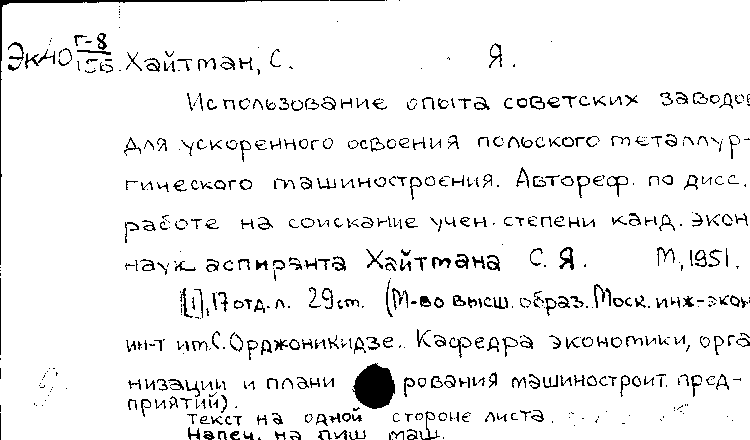 Эк40 Г-8/155 Хайтман, С. Я.
Использование опыта советских заводов
для ускоренного освоения польского металлур-
гического машиностроения. Автореф. по дисс.
работе на соискание учен. степени канд. экон
наук аспиранта Хайтмана С. Я. М, 1951.
[1], 17 отд. л. 29 см. (М-во высш. образ. Моск. инж-экон
ин-т им. С. Орджоникидзе. Кафедра экономики, орга
низации и плани рования машиностроит. пред-
приятий).
Текст на одной стороне листа.
Напеч. на пиш маш.